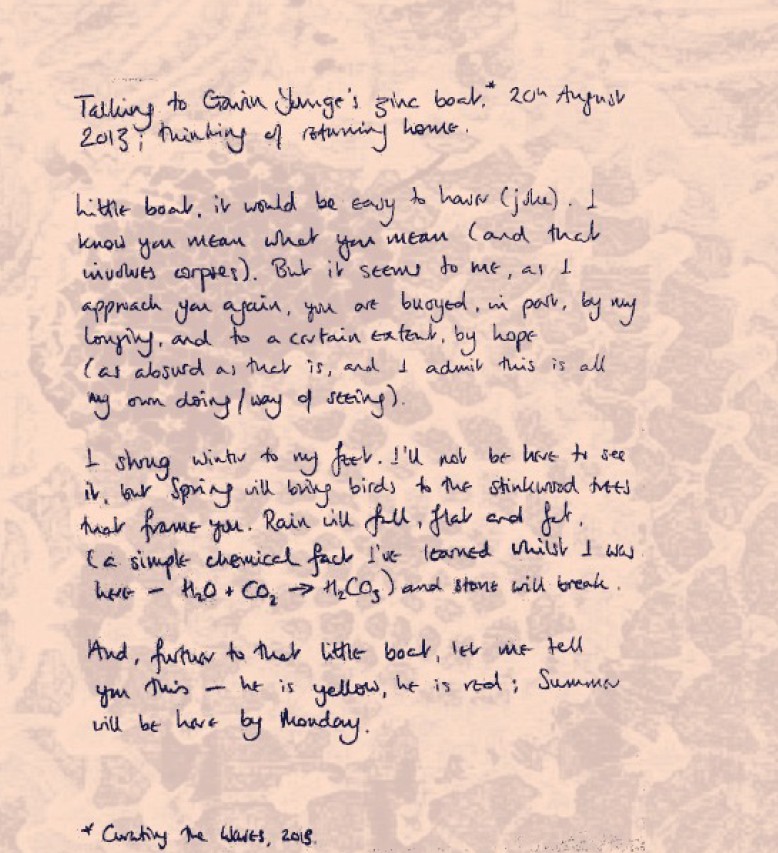 Talking to Gavin Younge's zinc boat,* 20th August
2013; thinking of returning home.
Little boat, it would be easy to haver (joke). I
know you mean what you mean (and that
involves corpses). But it seems to me, as I
approach you again, you are buoyed, in part, by my
longing, and to a certain extent, by hope
(as absurd as that is, and I admit this is all
my own doing/way of seeing).
I shrug Winter to my feet. I'll not be here to see
it, but Spring will bring birds to the stinkwood trees
that frame you. Rain will fall, flat and fat,
(a simple chemical fact I've learned whilst I was
here – H₂O + CO₂ → H₂CO₃) and stone will break.
And, further to that little boat, let me tell
you this – he is yellow, he is red; Summer
will be here by Monday.
* Curating the Waves,